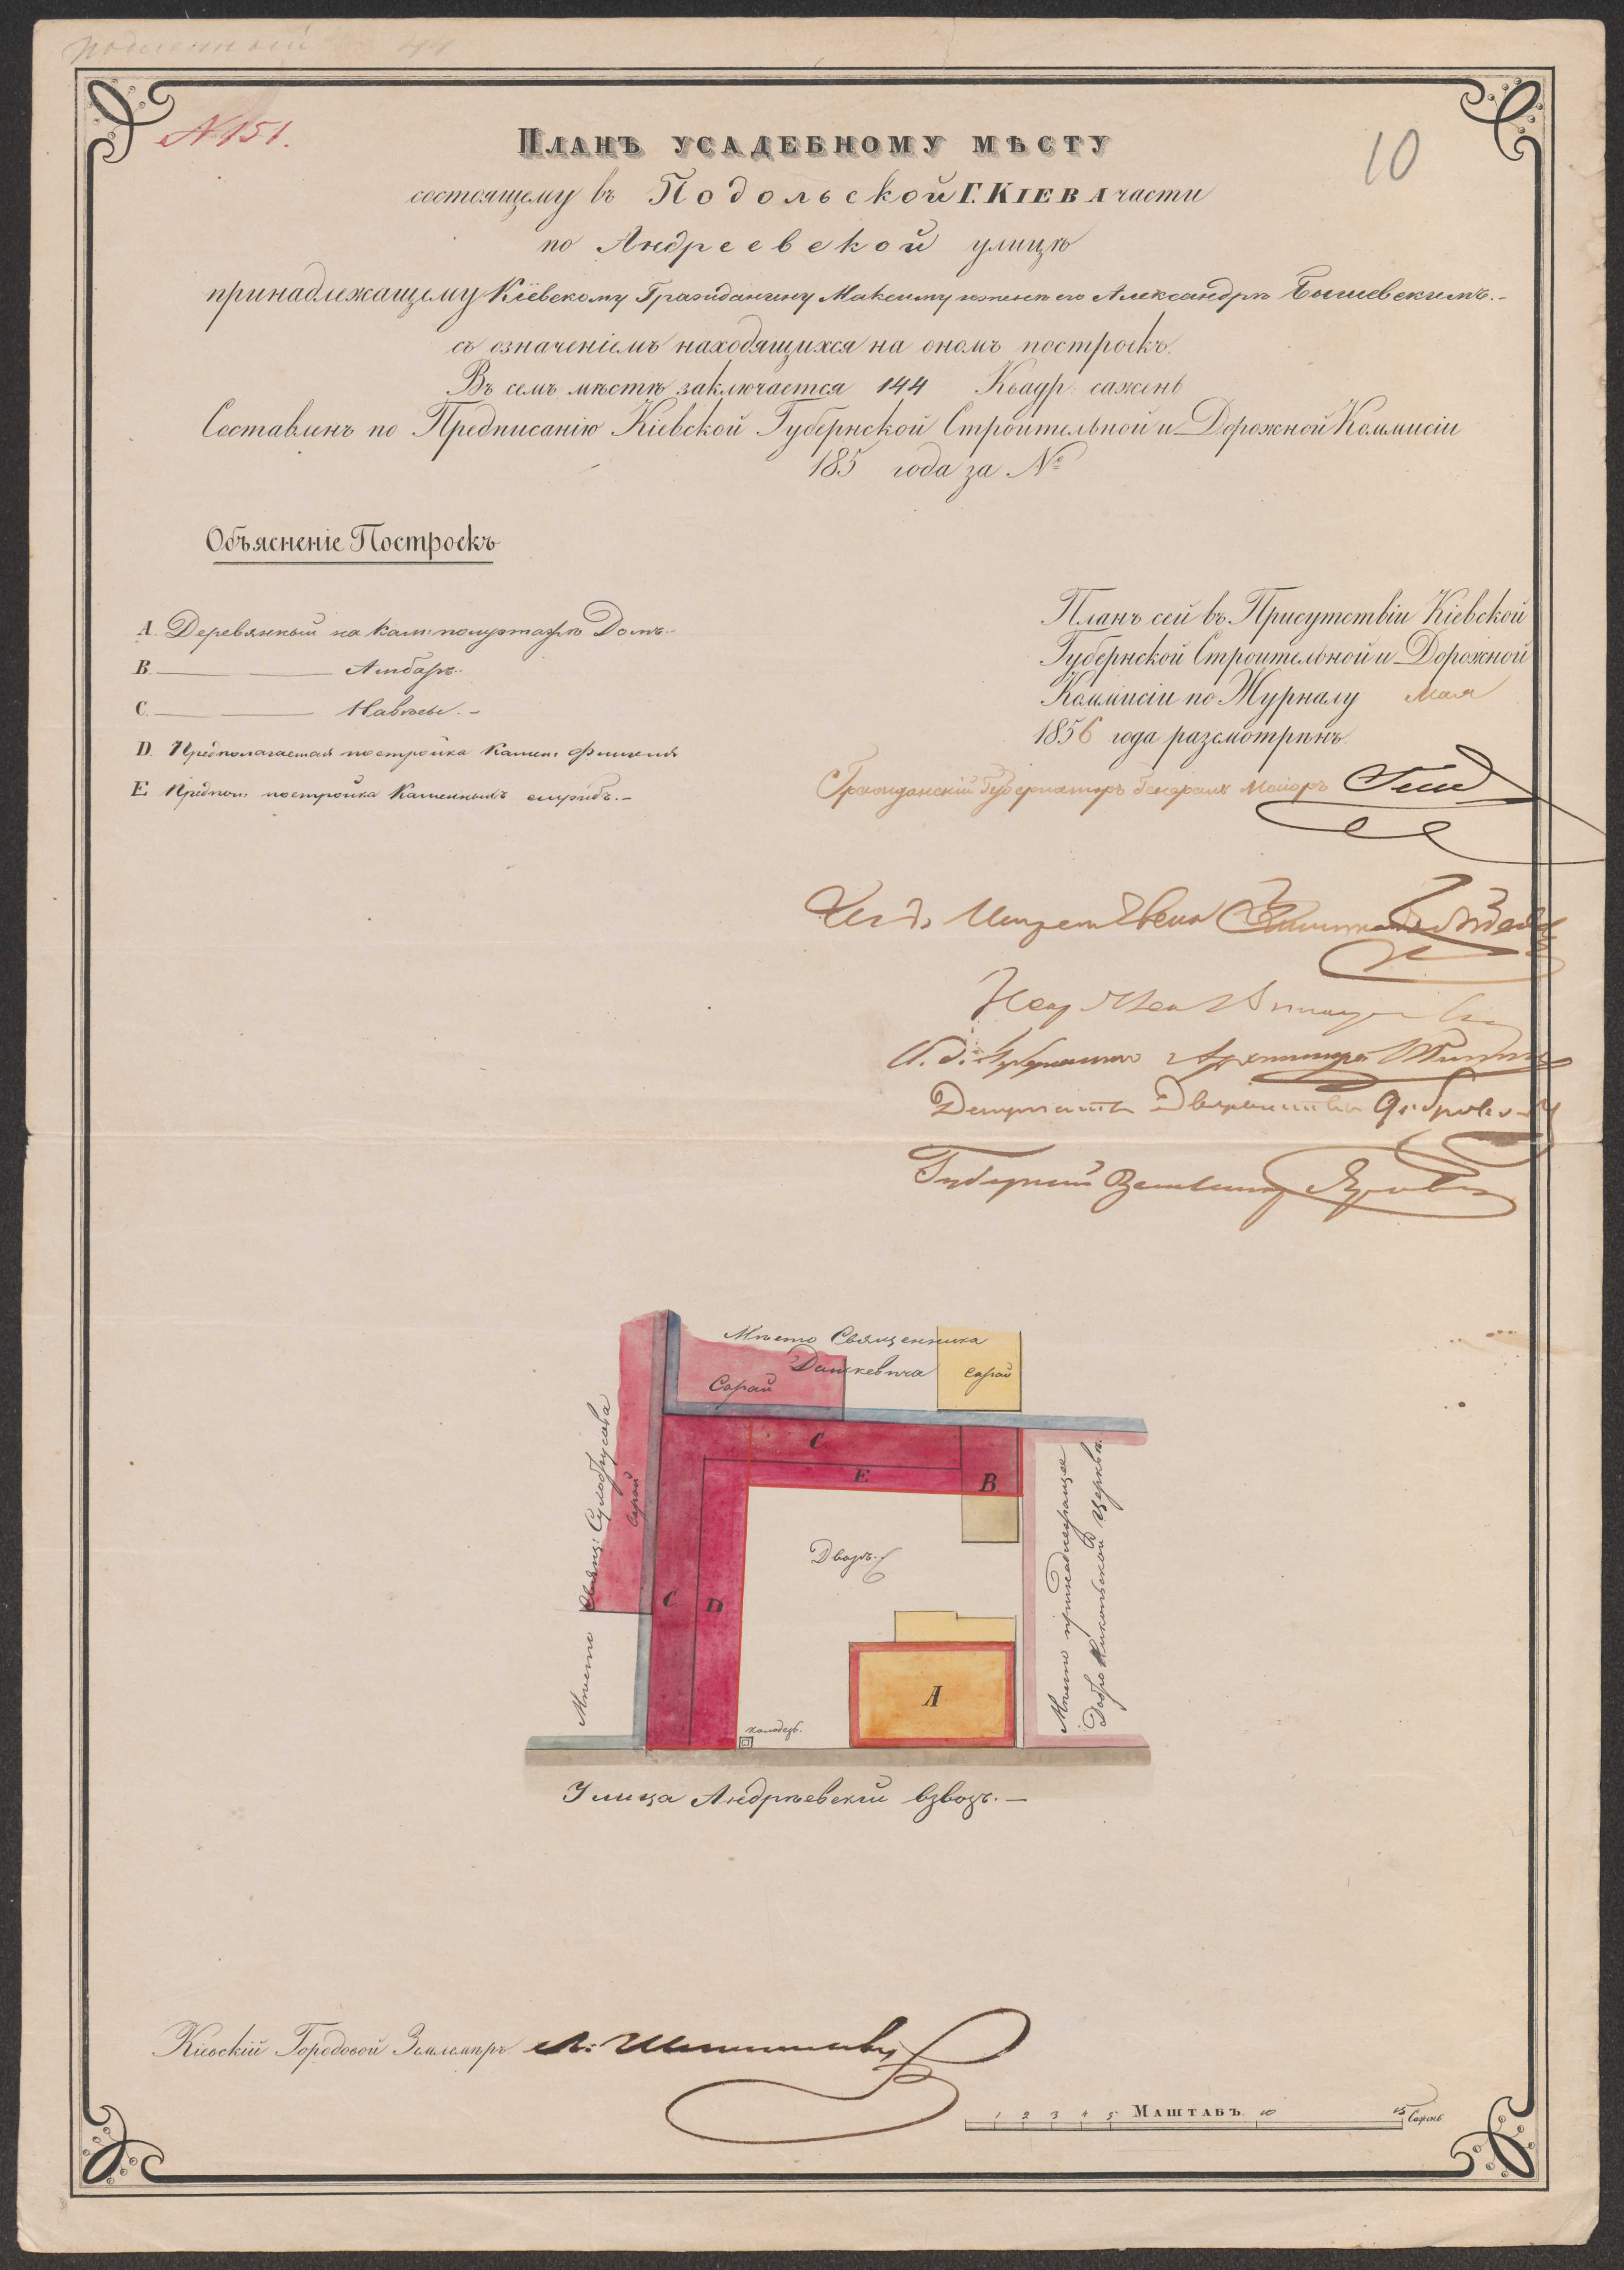 N 151.
10
Планъ усадебному мѣсту
состоящему въ Подольской Г. КІЕВА части
по Андреевской улицѣ
принадлежащему Кіевскому Гражданину Максиму и женѣ его Александрѣ
съ означеніемъ находящихся на ономъ построекъ.
Въ семъ мѣстѣ заключается 144 Квадр: сажень
Составленъ по Предписанію Кіевской Губернской Строительной и Дорожной Коммисіи
185 года за №
Объясненіе Построекъ
A. Деревянный на кам: полуэтажѣ Домъ.-
B. Амбаръ.
C. Навѣсы.-
D. Предполагаемая постройка Камен: флигеля
E. Предпол: постройка Каменныхъ службъ.-
Планъ сей въ Присутствіи Кіевской
Губернской Строительной и Дорожной
Коммисіи по Журналу Мая
1856 года разсмотрѣнъ.
Гражданскій Губернаторъ Генералъ Маіоръ
И. д. Губернскаго Архитектора
Депутатъ Дворянства
Губернскій Землемѣръ
Мѣсто Священника
Дашкевича
Сарай
сарай
Мѣсто Свящ: Сулобрусова
Сарай
C.
E
B
C
D
Дворъ.
A
колодезь.
Мѣсто принадлежащее
Добро Никольской Церквѣ.
Улица Андрѣевскій взвозъ.-
Кіевскій Городовой Землемѣръ
1 2 3 4 5 МАШТАБЪ. 10 15 Сажень